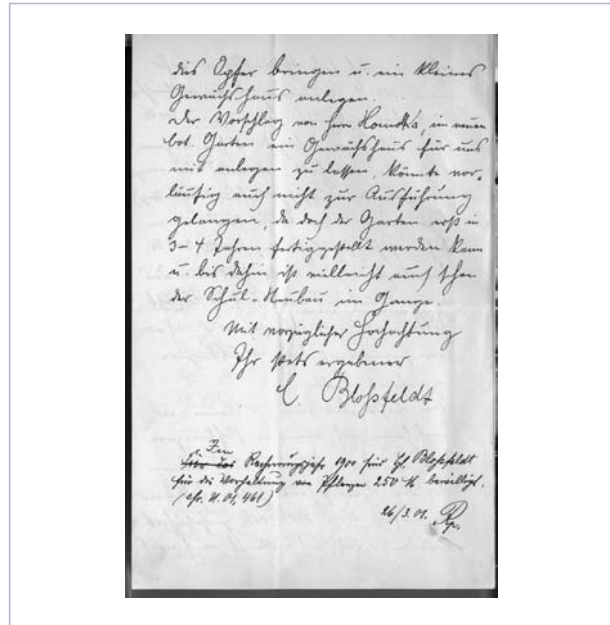 dies Opfer bringen u. ein kleines
Gewächshaus anlegen.
Der Vorschlag von Herrn , im neuen
bot. Garten ein Gewächshaus für uns
mit anlegen zu lassen, könnte vor-
läufig auch nicht zur Ausführung
gelangen, da doch der Garten erst in
3-4 Jahren fertiggestellt werden kann
u. bis dahin ist vielleicht auch schon
der Schul-Neubau im Gange.
Mit vorzüglicher Hochachtung
Ihr stets ergebener
C. Bloßfeldt
Im
Rechnungsjahr 1900 sind H. Bloßfeldt
für die Vorhaltung von Pflanzen 250 M bewilligt.
01, 461)
26/3. 01.